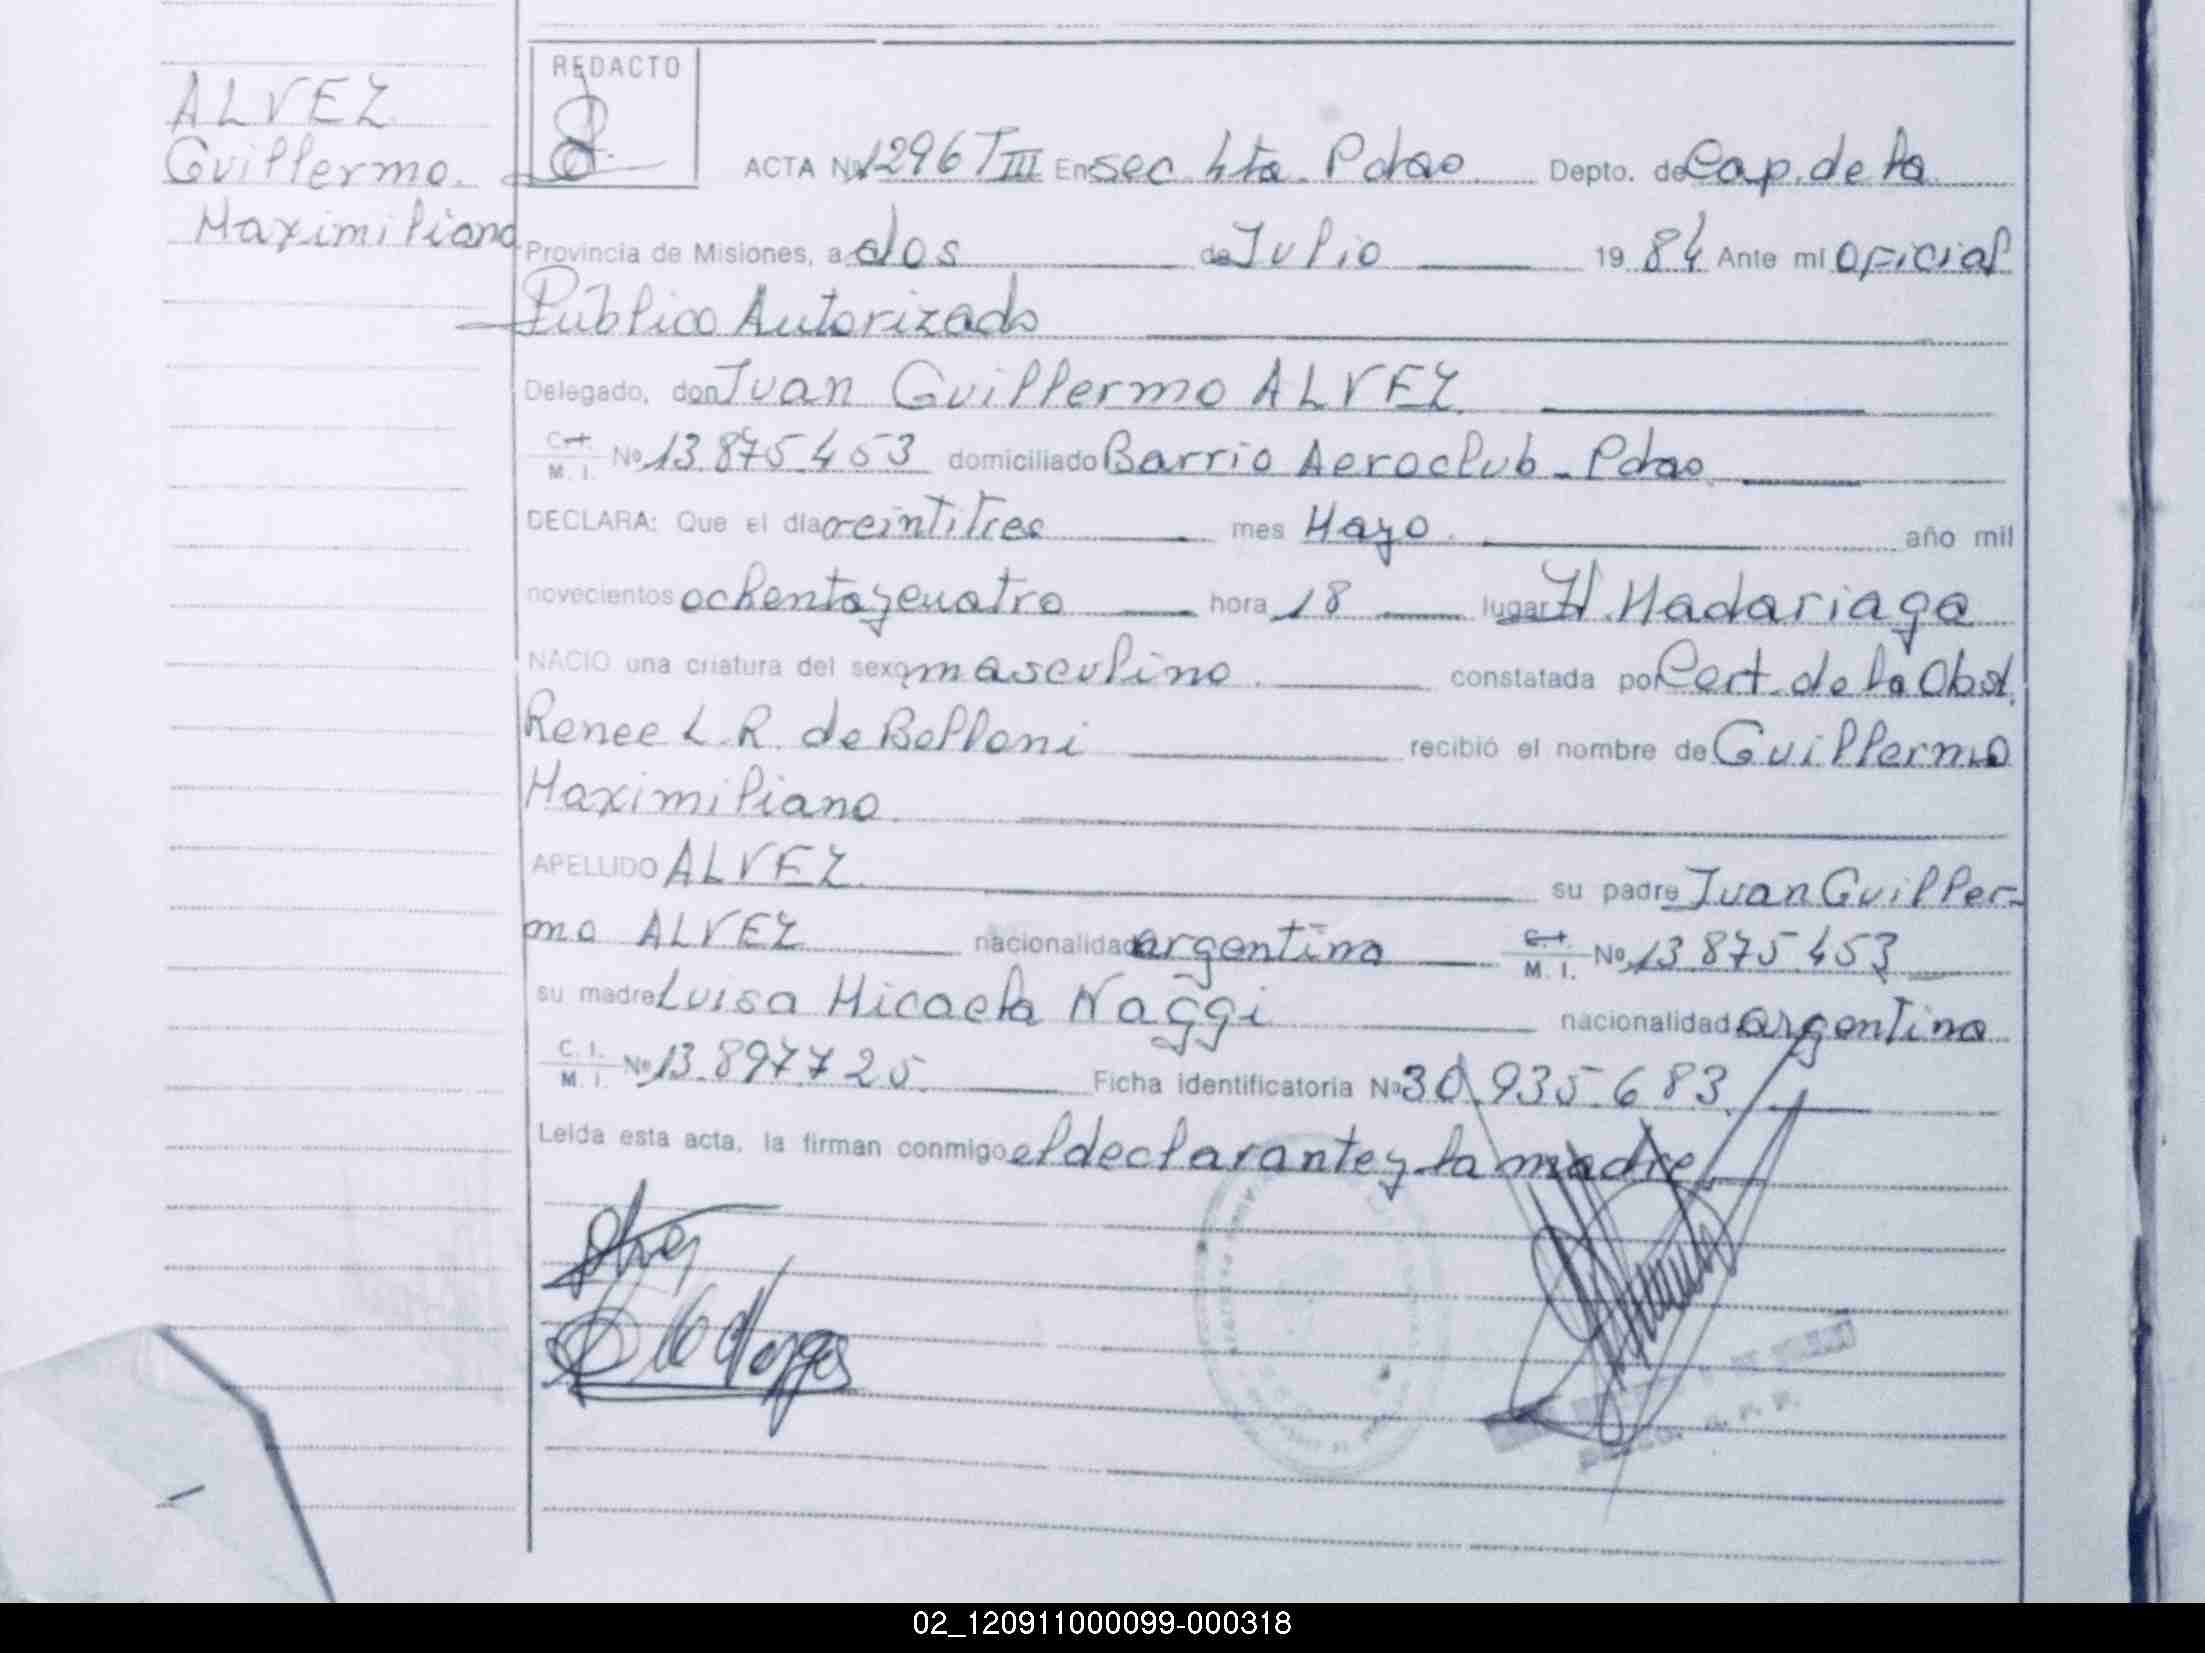 ALVEZ
Guillermo.
Maximiliano
REDACTO
ACTA Nº 1296 T III En sec 4ta. Pdas Depto. de Cap. de la
Provincia de Misiones, a dos de Julio 19 84 Ante mí Oficial
Público Autorizado
Delegado, don Juan Guillermo ALVEZ.
C.I. M. I. Nº 13.875.453 domiciliado Barrio Aeroclub - Pdas.
DECLARA: Que el día veintitres mes Mayo. año mil
novecientos ochenta y cuatro hora 18 lugar H. Madariaga
NACIO una criatura del sexo masculino. constatada por Cert. de la Obst.
Renee L. R. de Belloni recibió el nombre de Guillermo
Maximiliano.
APELLIDO ALVEZ. su padre Juan Guiller-
mo ALVEZ nacionalidad argentina C.I. M. I. Nº 13.875.453
su madre Luisa Micaela Naggi nacionalidad argentina
C. I. M. I. Nº 13.897.725 Ficha identificatoria Nº 30.935.683.
Leída esta acta, la firman conmigo el declarante y la madre
02_120911000099-000318